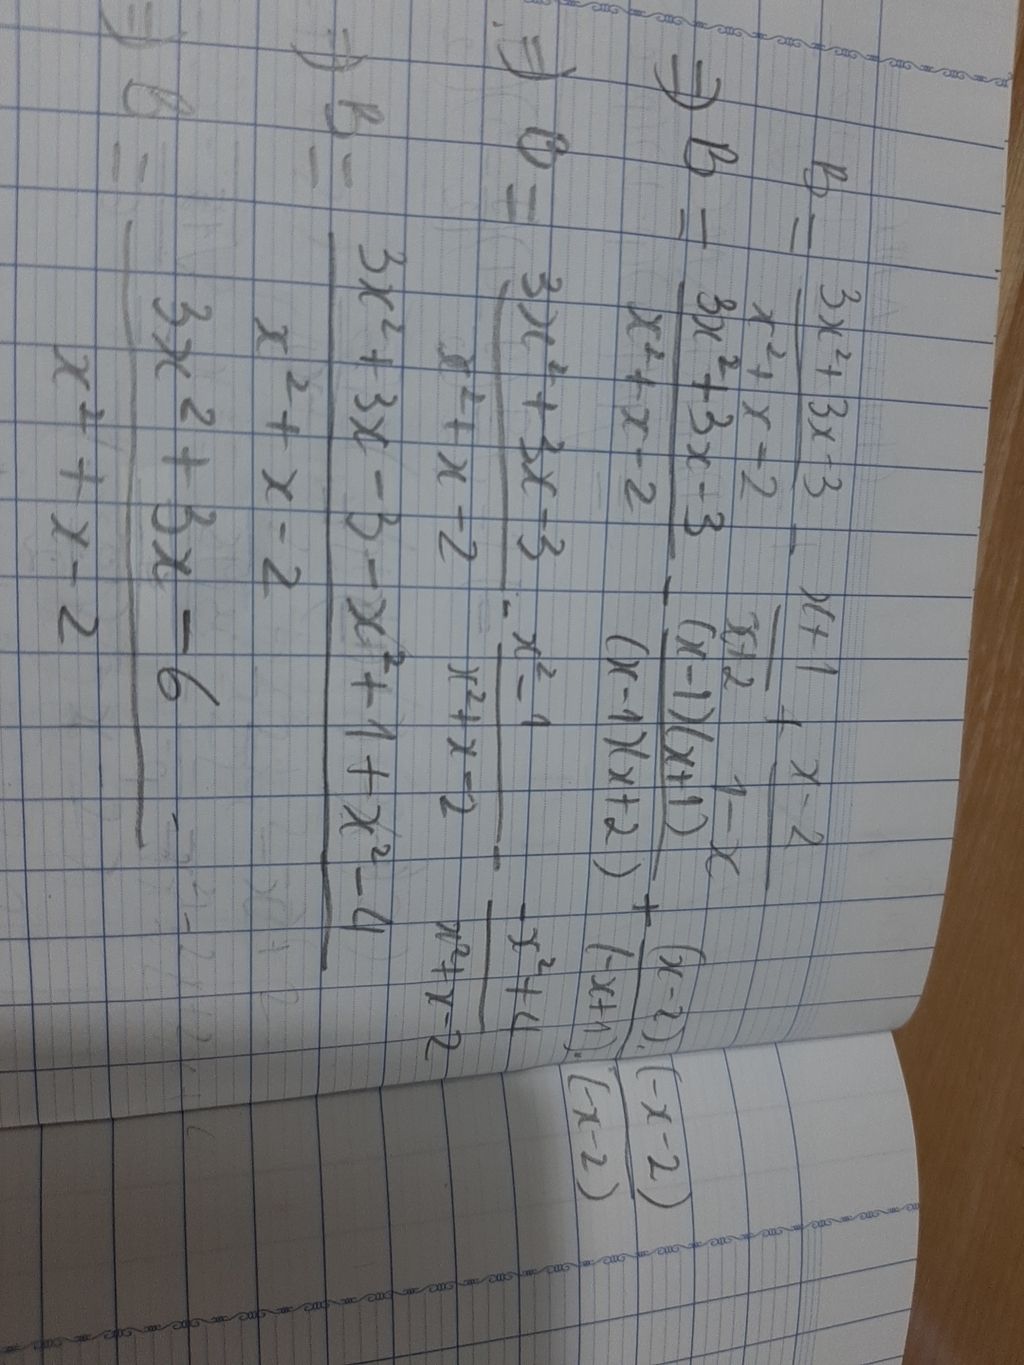 B = (3x² + 3x - 3)/(x² + x - 2) - (x + 1)/(x + 2) + (x - 2)/(1 - x)
⇒ B = (3x² + 3x - 3)/(x² + x - 2) - ((x - 1)(x + 1))/((x - 1)(x + 2)) + ((x - 2).(-x - 2))/((-x + 1).(-x - 2))
⇒ B = (3x² + 3x - 3)/(x² + x - 2) - (x² - 1)/(x² + x - 2) - (-x² + 4)/(x² + x - 2)
⇒ B = (3x² + 3x - 3 - x² + 1 + x² - 4)/(x² + x - 2)
⇒ B = (3x² + 3x - 6)/(x² + x - 2)